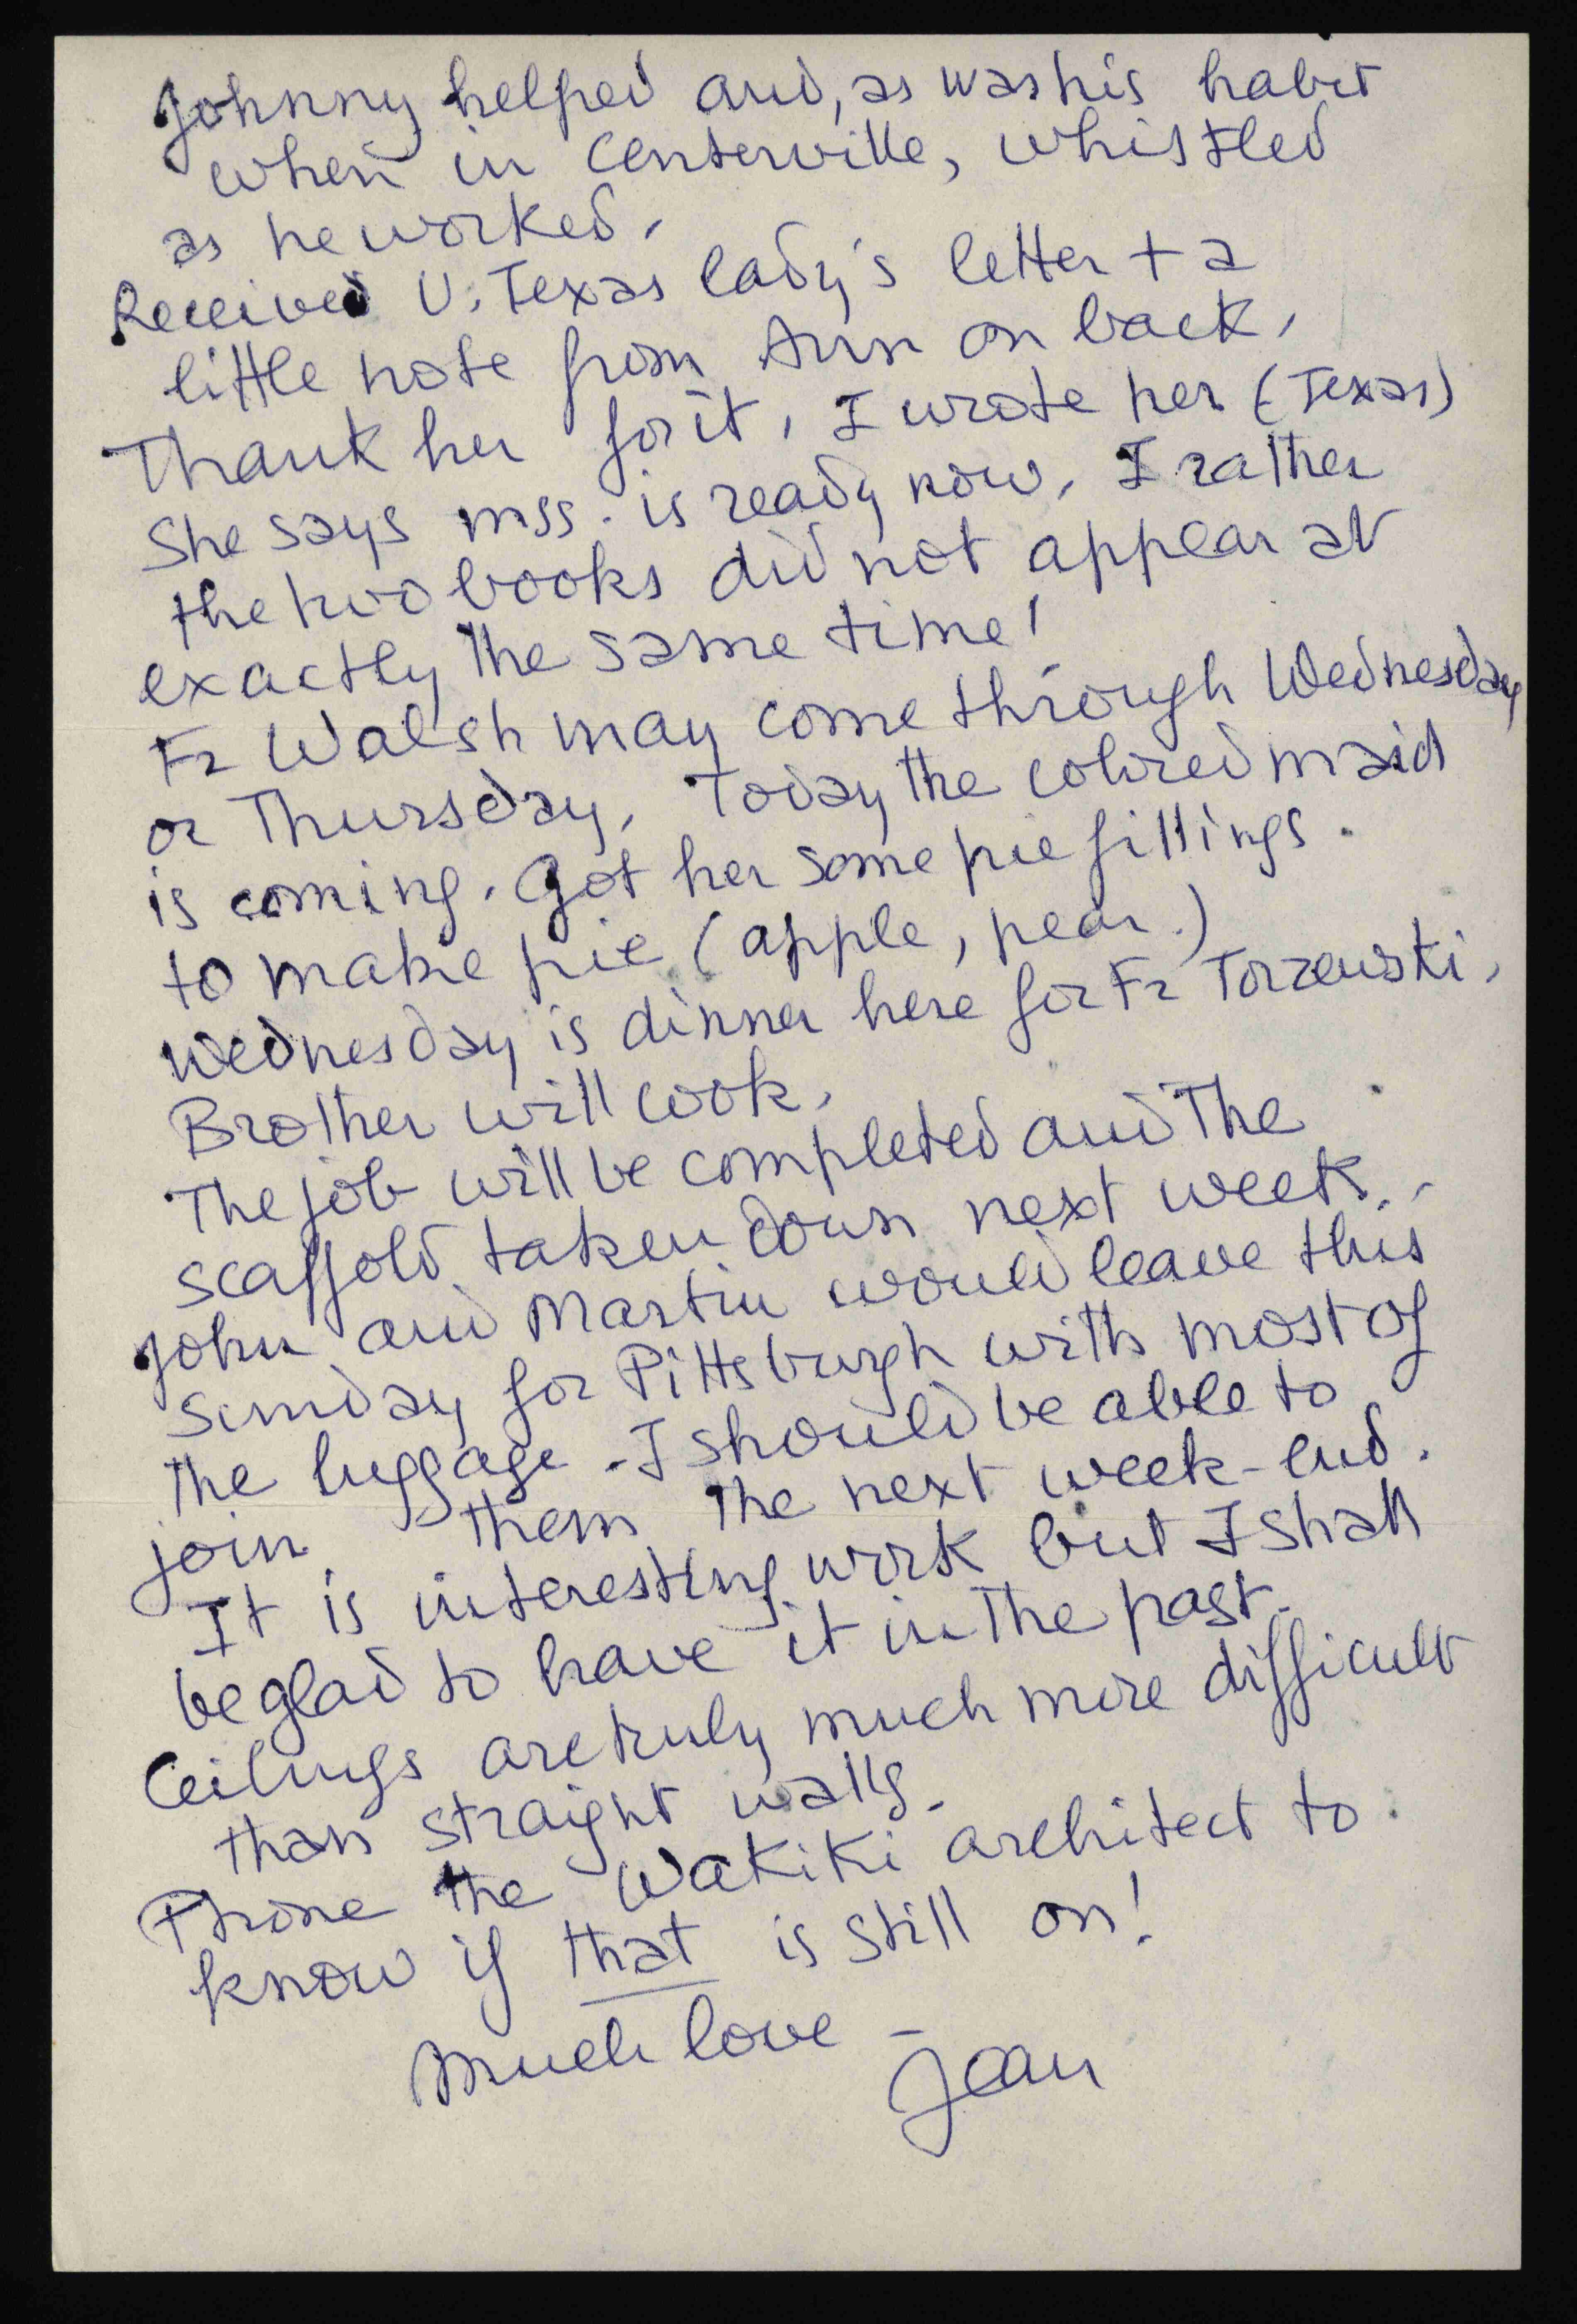 Johnny helped and, as was his habit
when in Centerville, whistled
as he worked.
Received U. Texas lady's letter + a
little note from Ann on back.
Thank her for it. I wrote her (Texas)
She says mss. is ready now. I rather
the two books did not appear at
exactly the same time!
Fr Walsh may come through Wednesday
or Thursday. Today the colored maid
is coming. Got her some pie fillings.
to make pie (apple, pear.)
Wednesday is dinner here for Fr Torzewski.
Brother will cook.
The job will be completed and the
scaffold taken down next week.
John and Martin would leave this
Sunday for Pittsburgh with most of
the luggage. I should be able to
join them the next week-end.
It is interesting work but I shall
be glad to have it in the past.
Ceilings are truly much more difficult
than straight walls.
Phone the Wakiki architect to
know if that is still on!
Much love –
Jean